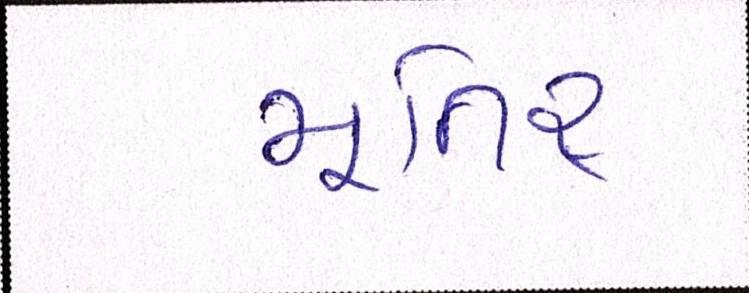 મૂનિર